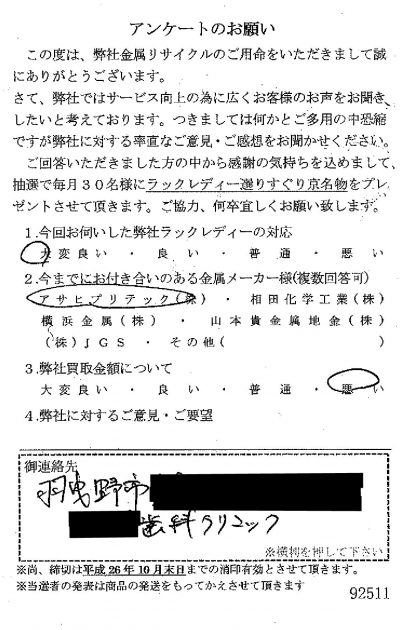 アンケートのお願い
この度は、弊社金属リサイクルのご用命をいただきまして誠
にありがとうございます。
さて、弊社ではサービス向上の為に広くお客様のお声をお聞き
したいと考えております。つきましては何かとご多用の中恐縮
ですが弊社に対する率直なご意見・ご感想をお聞かせください。
ご回答いただきました方の中から感謝の気持ちを込めまして、
抽選で毎月30名様にラックレディー選りすぐり京名物をプレ
ゼントさせて頂きます。ご協力、何卒宜しくお願い致します。
1.今回お伺いした弊社ラックレディーの対応
大変良い・良い・普通・悪い
2.今までにお付き合いのある金属メーカー様(複数回答可)
アサヒプリテック(株)・相田化学工業(株)
横浜金属(株)・山本貴金属地金(株)
(株)JGS・その他( )
3.弊社買取金額について
大変良い・良い・普通・悪い
4.弊社に対するご意見・ご要望
御連絡先
羽曳野市
歯科クリニック
※横判を押して下さい
※尚、締切は平成26年10月末日までの消印有効とさせて頂きます。
※当選者の発表は商品の発送をもってかえさせて頂きます
92511